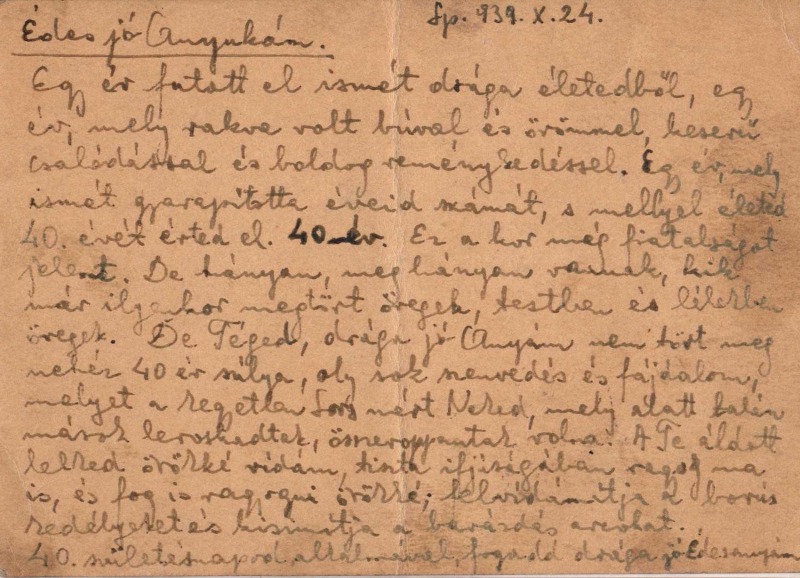 Sp. 939. X. 24.
Édes jó Anyukám.
Egy év futott el ismét drága életedből, egy
év, mely rakva volt búval és örömmel, keserű
csalódással és boldog reménykedéssel. Egy év, mely
ismét gyarapította éveid számát, s mellyel életed
40. évét érted el. 40 év. Ez a kor még fiatalságot
jelent. De hányan, meg hányan vannak, kik
már ilyenkor megtört öregek, testben és lélekben
öregek. De Téged, drága jó Anyám nem tört meg
nehéz 40 év súlya, oly sok szenvedés és fájdalom,
melyet a kegyetlen Sors mért Neked, mely alatt talán
mások leroskadtak, összeroppantak volna. A Te áldott
lelked örökké vidám, tiszta ifjúságában ragyog ma
is, és fog is ragyogni örökké; felvidámítja a borús
kedélyeket és kisimítja a barázdás arcokat.
40. születésnapod alkalmával, fogadd drága jó Édesanyám